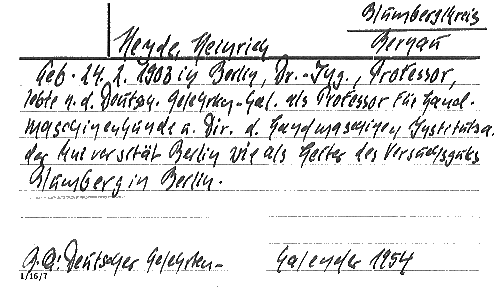 Blumberg Kreis
Heyde, Heinrich Bernau
Geb. 24.2.1903 in Berlin, Dr.-Ing., Professor,
lebte n. d. Deutsch. Gelehrten-Kal. als Professor für Land-
maschinenkunde u. Dir. d. Landmaschinen Instituts a.
der Universität Berlin wie als Leiter des Versuchsguts
Blumberg in Berlin.
Deutscher Gelehrten- Kalender 1954
1/16/7